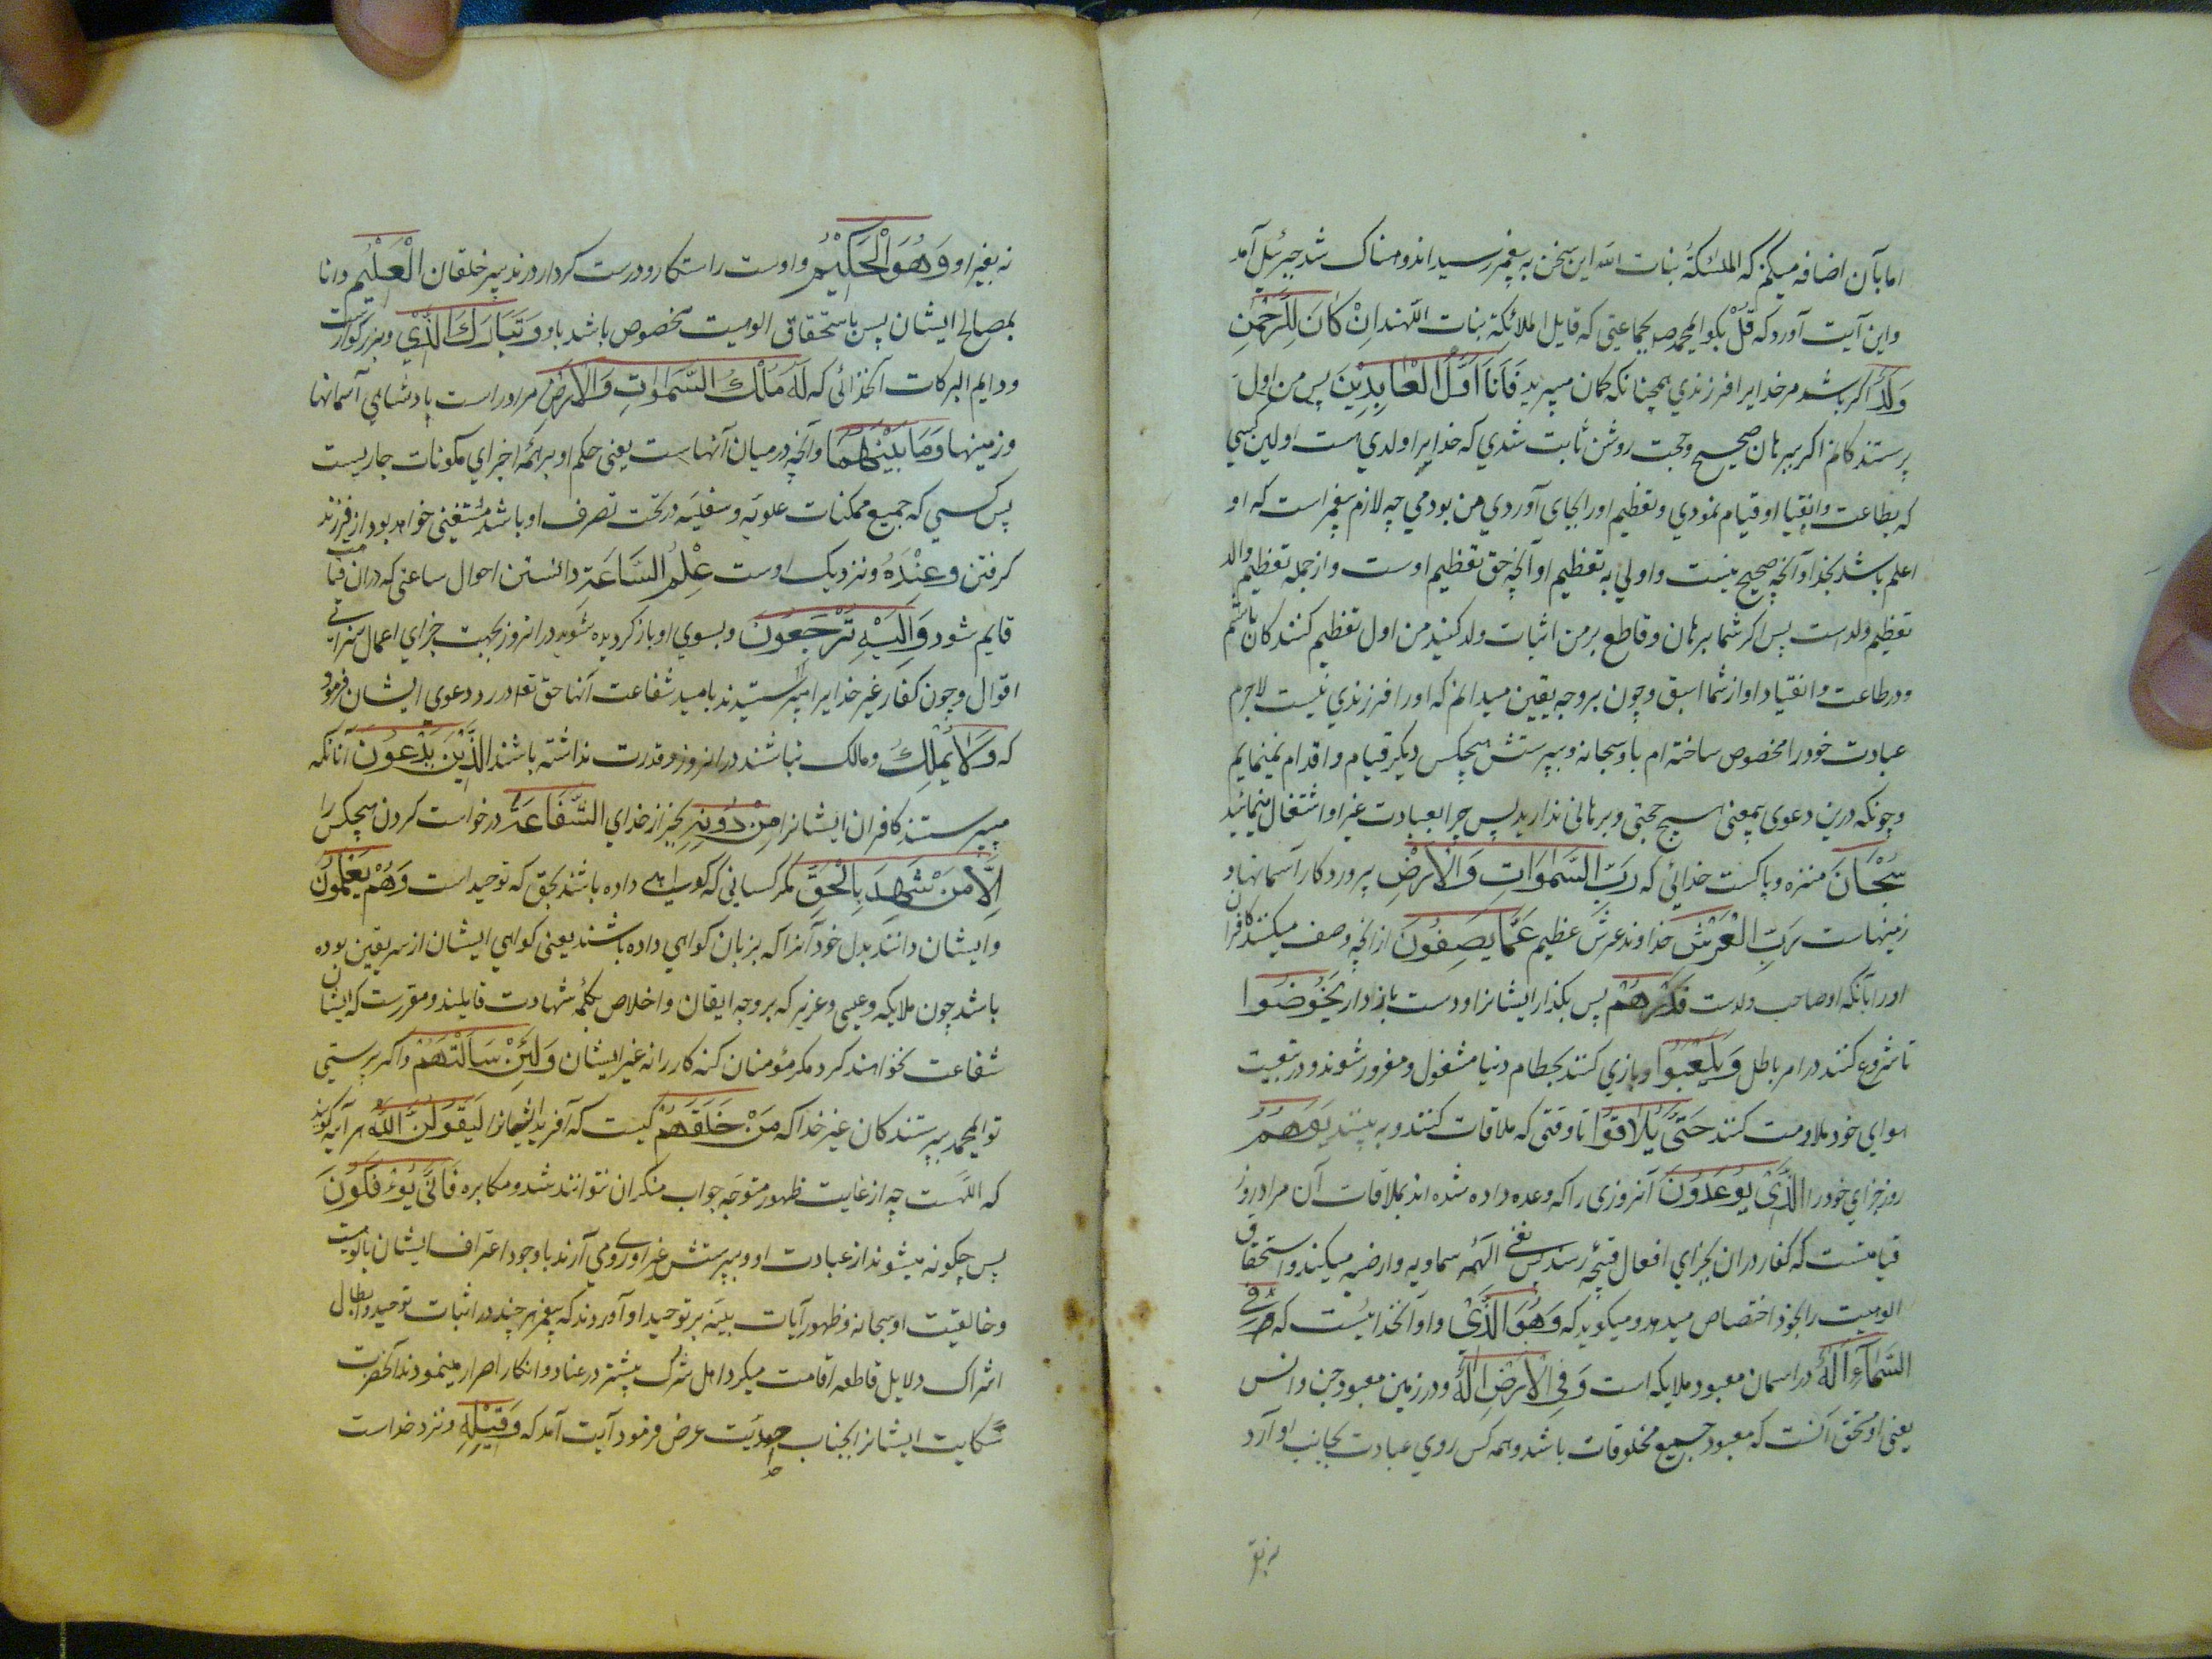 اما بآن اضافه میکنم که الملئکة بنات الله این سخن به پیغمبر رسید اندوهناک شد جبرئیل آمد
و این آیت آورد که قُلْ بکو ای محمد ص بجماعتی که قایل الملائکة بنات اللهند اِنْ کَانَ لِلرَّحْمٰنِ
وَلَدٌ اکر باشد مر خدایرا فرزندی همچنانکه کمان میبرید فَاَنَا اَوَّلُ الْعَابِدِیْنَ پس من اول
پرستندکانم اکر ببرهان صحیح و حجت روشن ثابت شدی که خدایرا ولدی هست اولین کسی
که بطاعت وانقیاد او قیام نمودی و تعظیم او را بجای آوردی من بودمی چه لازم پیغمبر است که او
اعلم باشد بخدا و آنچه صحیح نیست و اولی به تعظیم او آنچه حق تعظیم اوست و از جمله تعظیم والد
تعظیم ولد است پس اکر شما برهان و قاطع بر من اثبات ولد کنید من اول تعظیم کنندکان باشم
و در طاعت و انقیاد او از شما اسبق و چون بر وجه یقین میدانم که او را فرزندی نیست لاجرم
عبادت خود را مخصوص ساخته ام باو سبحانه و بپرستش هیچکس دیکر قیام و اقدام نمینمایم
و چونکه درین دعوی بمعنی هیچ حجتی و برهانی ندارید پس چرا بعبادت غیر او اشتغال مینمائید
سُبْحَانَ منزه و پاکست خدائی که رَبِّ السَّمٰوَاتِ وَالْاَرْضِ پروردکار آسمانها و
زمینهاست رَبِّ الْعَرْشِ خداوند عرش عظیم عَمَّا یَصِفُوْنَ از آنچه وصف میکنند کافران
او را بآنکه او صاحب ولدست فَذَرْهُمْ پس بکذار ایشانرا و دست باز دار یَخُوْضُوا
تا شروع کنند در امر باطل وَیَلْعَبُوا و بازی کنند بحطام دنیا مشغول و مغرور شوند و در تبعیت
هوای خود ملاومت کنند حَتّٰی یُلَاقُوْا تا وقتی که ملاقات کنند و به بینند یَوْمَهُمُ
روز جزای خود را الَّذِیْ یُوْعَدُوْنَ آنروزی را که وعده داده شده اند بملاقات آن مراد روز
قیامتست که کفار دران بجزای افعال قبیحه رسند پس نفی الهه سماویه و ارضیه میکند و استحقاق
الوهیت را بخود اختصاص میدهد و میکوید که وَهُوَ الَّذِیْ و او آنخدائیست که فِی
السَّمَآءِ اِلٰهٌ در آسمان معبود ملایکه است وَفِی الْاَرْضِ اِلٰهٌ و در زمین معبود جن و انس
یعنی او مستحق آنست که معبود جمیع مخلوقات باشد و همه کس روی عبادت بجانب او آرد
نه بغیر
نه بغیر او وَهُوَ الْحَکِیْمُ و اوست راستکار و درست کردار در تدبیر خلقان الْعَلِیْمُ دانا
بمصالح ایشان پس باستحقاق الوهیت مخصوص باشد باو وَتَبَارَکَ الَّذِیْ و بزرکوارست
و دایم البرکات آنخدائی که لَهٗ مُلْکُ السَّمٰوَاتِ وَالْاَرْضِ مر او راست پادشاهی آسمانها
و زمینها وَمَا بَیْنَهُمَا و آنچه در میان آنهاست یعنی حکم او بر همه اجزای مکونات جاریست
پس کسی که جمیع ممکنات علویه و سفلیه در تحت تصرف او باشد مستغنی خواهد بود از فرزند
کرفتن وَعِنْدَهٗ و نزدیک اوست عِلْمُ السَّاعَةِ دانستن احوال ساعتی که دران قیامت
قایم شود وَاِلَیْهِ تُرْجَعُوْنَ و بسوی او باز کردیده شوید در انروز بجهت جزای اعمال سزای
اقوال و چون کفار غیر خدایرا میپرستیدند بامید شفاعت آنها حق تعالی در رد دعوی ایشان فرمود
که وَلَا یَمْلِکُ و مالک نباشند در انروز و قدرت نداشته باشند الَّذِیْنَ یَدْعُوْنَ آنانکه
میپرستند کافران ایشانرا مِنْ دُوْنِهِ بجز از خدای الشَّفَاعَةَ درخواست کردن هیچکس را
اِلَّا مَنْ شَهِدَ بِالْحَقِّ مکر کسانی که کواهی داده باشند بحق که توحید است وَهُمْ یَعْلَمُوْنَ
و ایشان دانند بدل خود آنرا که بزبان کواهی داده باشند یعنی کواهی ایشان از سر یقین بوده
باشد چون ملایکه و عیسی و عزیر که بر وجه ایقان و اخلاص بکلمه شهادت قایلند و مقررست که ایشان
شفاعت نخواهند کرد مکر مؤمنان کنه کار را نه غیر ایشان وَلَئِنْ سَاَلْتَهُمْ و اکر پرستی
تو ای محمد بپرستندکان غیر خدا که مَنْ خَلَقَهُمْ کیست که آفرید ایشانرا لَیَقُوْلُنَّ اللّٰهُ هر آینه کویند
که اللهست چه از غایت ظهور متوجه جواب منکران نتوانند شد و مکابره فَاَنّٰی یُؤْفَکُوْنَ
پس چکونه میشوند از عبادت او و بپرستش غیر او روی می آرند با وجود اعتراف ایشان بالوهیت
و خالقیت او سبحانه و ظهور آیات بینه بر توحید او آورده‌اند که پیغمبر هر چند در اثبات توحید و ابطال
اشراک دلایل قاطعه اقامت میکرد اهل شرک بیشتر در عناد و انکار اصرار مینمودند آنحضرت
شکایت ایشانرا بجناب احدیت عرض فرمود آیت آمد که وَقِیْلِهِ و نزد خداست